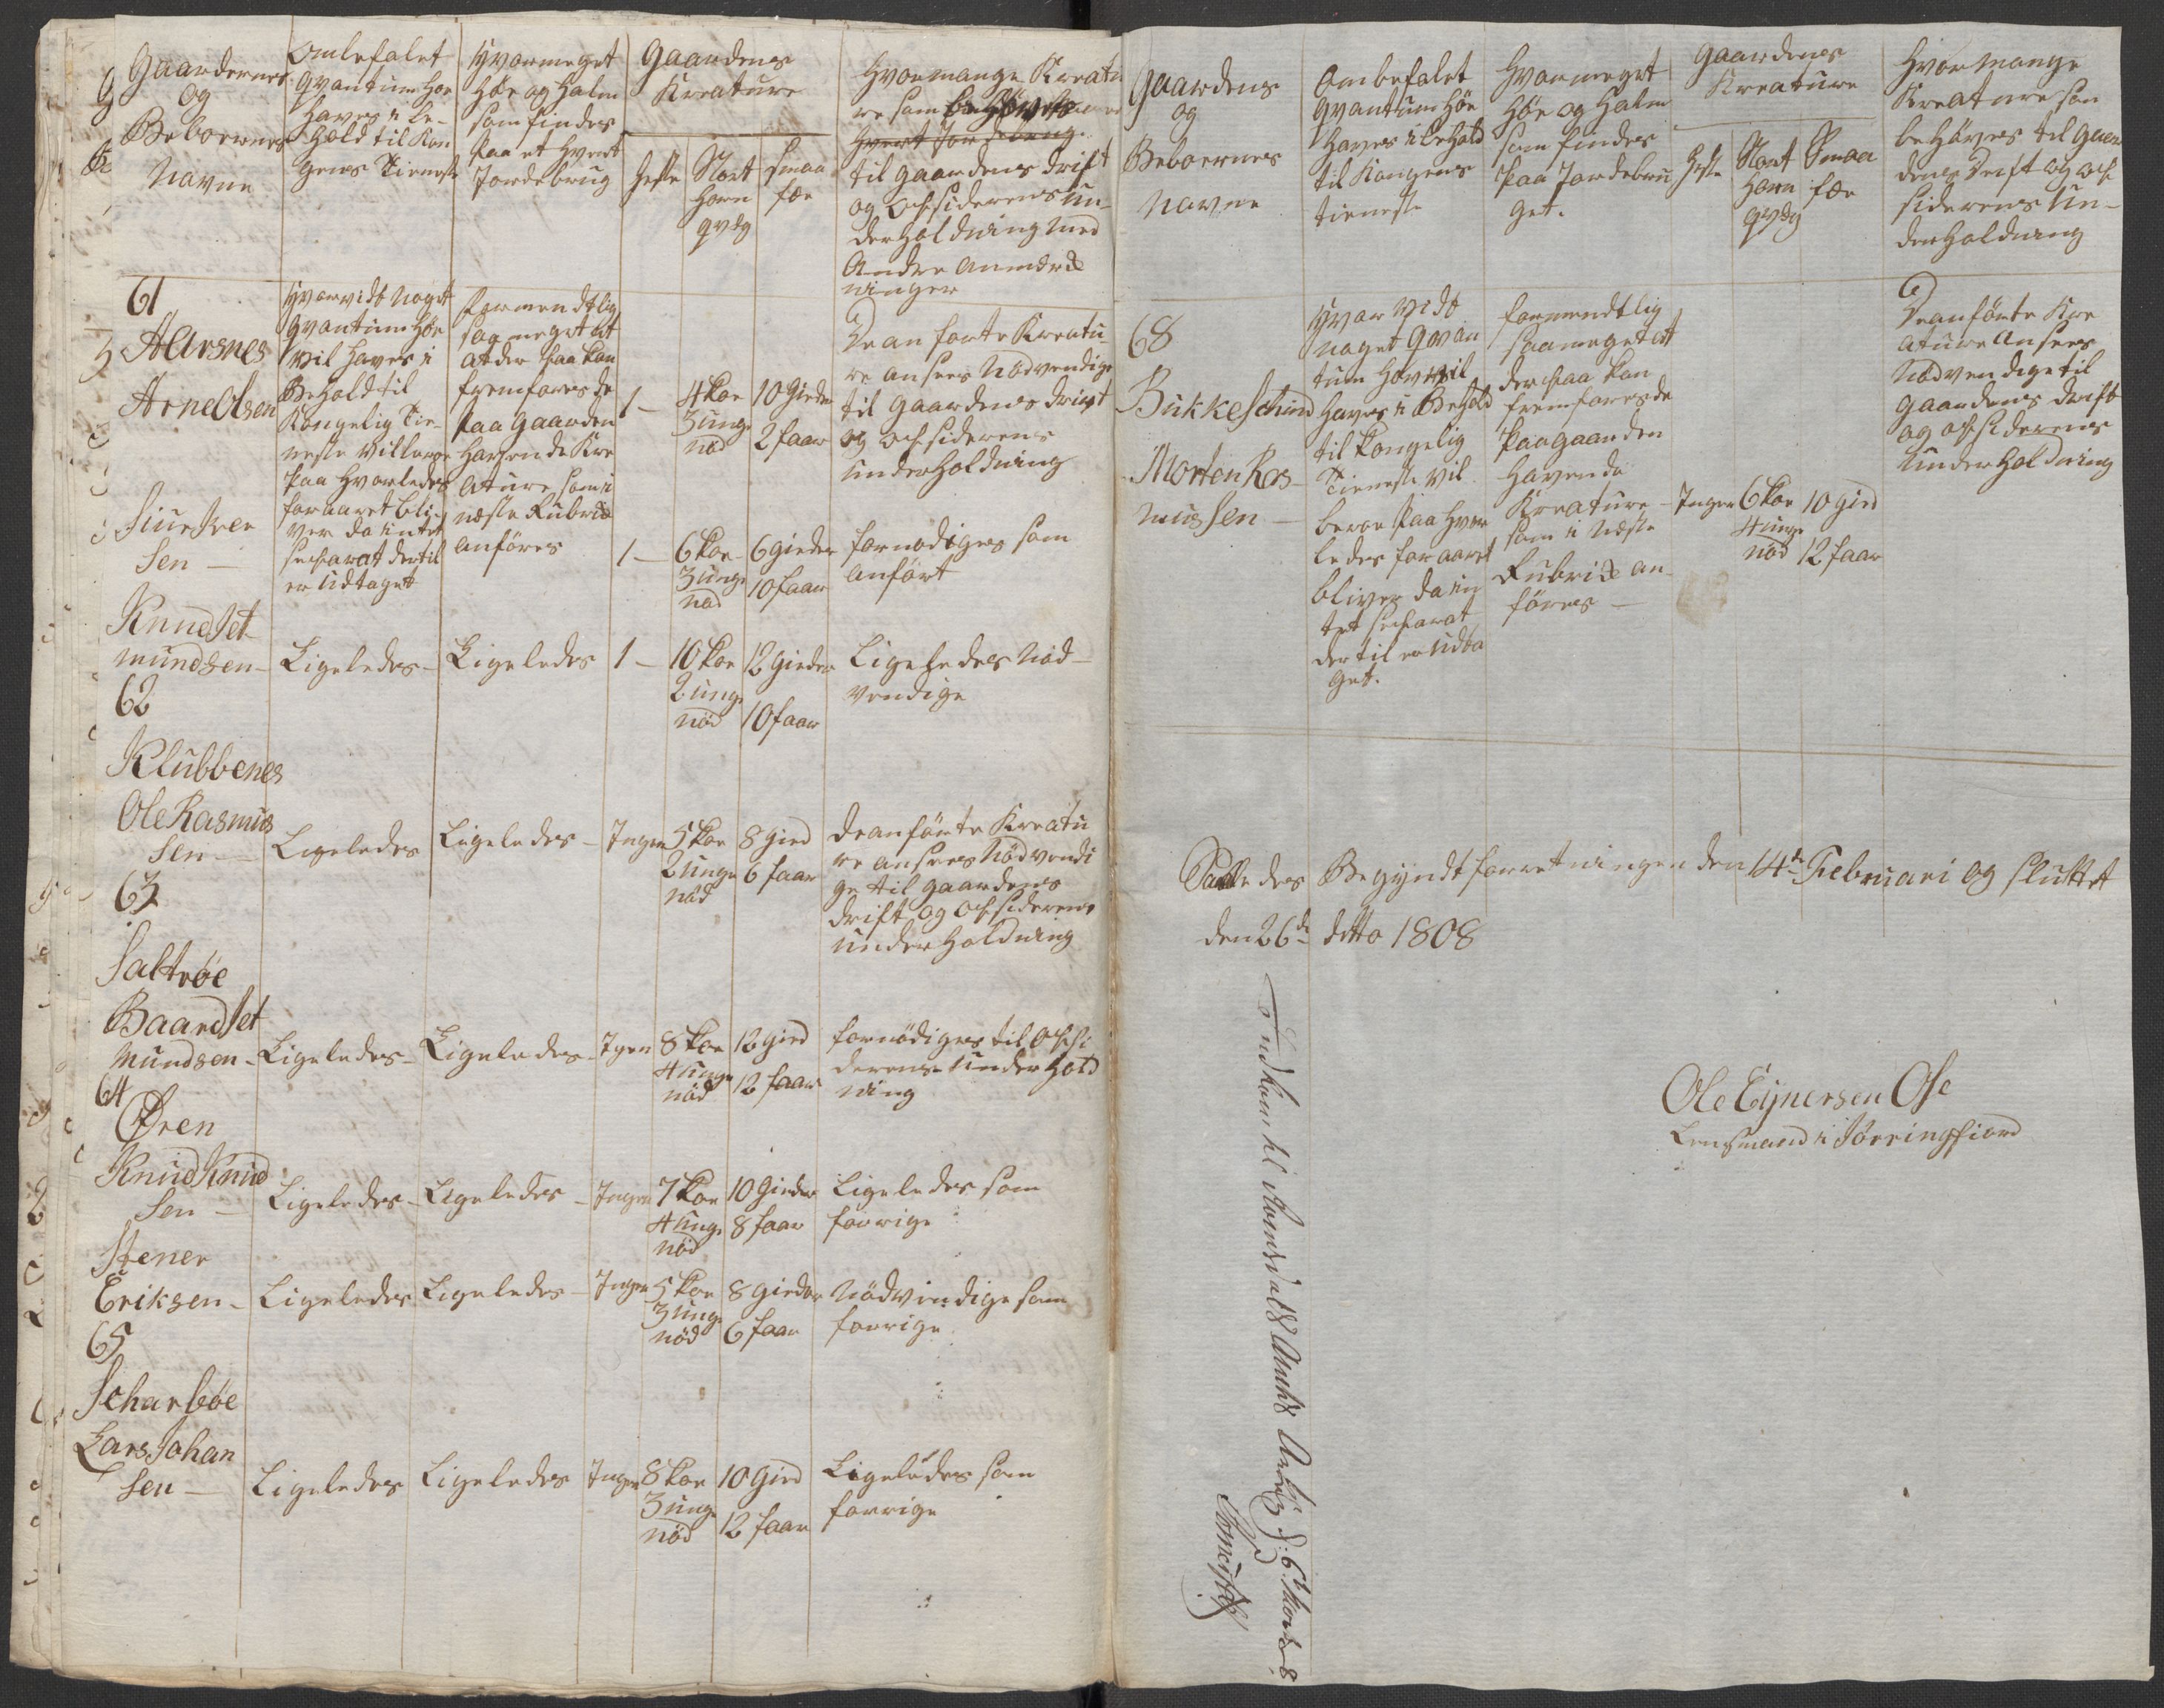 Gaardernes
og
Beboernes
Navne
Ombefalet
Qvantum Høe
Haves i Be-
hold til Kon
gens Tieneste
Hvormeget
Høe og Halm
som findes
Paa et hvert
Jordebrug
Gaardens
Kreature
Heste
Stort
Horn
qvæg
Smaa
fæ
Hvormange Kreatu
re som behøves
hvert Jordebrug
til Gaardens Drift
og Opsiderens Un-
derholdning med
Andre Anmærk
ninger
61
Aarsnes
Arne Olsen
Hvorvidt noget
Qvantum Høe
vil Haves i
Behold til
Kongelig Tie-
neste vil beroe
Paa Hvorledes
foraaret bli-
ver da intet
separat dertil
er udtaget
formendtlig
saa meget at
at der saa kan
fremfores de
Paa Gaarden
Havende Kre
ature som i
næste Rubrik
anføres
1 –
4 Kør
3 unge
nød
10 Gieder
2 faar
De anførte Kreatu-
re ansees Nødvendige
til Gaardens Drift
og Opsiderens
underholdning
Siur Iver
sen –
1 –
6 Kør
3 unge
nød
6 gieder
10 faar
fornødiges som
anført
Knud Set
mundsen –
Ligeledes –
Ligeledes
1 –
10 Kør
2 unge
nød
12 gieder
10 faar
Ligeledes Nød-
vendige
62
Klubbenes
Ole Rasmus
sen –
Ligeledes
Ligeledes –
Ingen
5 Kør
2 unge
nød
8 gied
6 faar
De anførte Kreatu
re ansees Nødvendi
ge til Gaardens
Drift og Opsiderens
underholdning
63
Saltrøe
Baard Set
mundsen –
Ligeledes –
Ligeledes –
Igen
8 Kør
4 unge
nød
12 gied
12 faar
fornødiges til Opsi
derens Underhold
ning
64
Øren
Knud Knud
sen –
Ligeledes –
Ligeledes –
Ingen
7 Kør
4 unge
nød
10 Gieder
8 faar
Ligeledes som
forrige
Stener
Eriksen –
Ligeledes
Ligeledes –
Ingen
5 Kør
3 unge
nød
8 gieder
6 faar
Nødvendige som
forrige
65
Scharbøe
Lars Johan
sen –
Ligeledes
Ligeledes
Ingen
8 Kør
3 unge
nød
10 Gied
12 faar
Ligeledes som
forrige
Gaardens
og
Beboernes
Navne
Ombefalet
Qvantum Høe
Haves i Behold
til Kongens
tieneste
Hvormeget
Høe og Halm
som findes
Paa Jordebru
get.
Gaardens
Kreature
Heste
Stort
Horn
qvæg
Smaa
fæ
Hvor Mange
Kreature som
behøves til Gaar
dens Drift og Op
siderens Un-
derholdning
68
Bukkeschind
Morten Ras-
mussen –
Hvor vidt
noget Qvan
tum Høe vil
Haves i Behold
til Kongelig
Tieneste vil
beroe Paa Hvor
ledes foraaret
bliver da in
tet separat
dertil er udta
get.
formendtlig
saameget at
der saa kan
fremfores de
Paa Gaarden
Havende
Kreature
som i Næste
Rubrik an
føres –
Ingen
6 Kør
4 unge
nød
10 gied
12 faar
De anførte Kre
ature Ansees
Nødvendige til
Gaardens Drift
og Opsiderens
Underholdning
Saaledes Begyndt forretningen den 14de Februari og sluttet
den 26de ditto 1808
Ole Ejnersen Ose
Lensmand i Jørringfiord
Indkom til Romsdals Amts d: 6t Marts